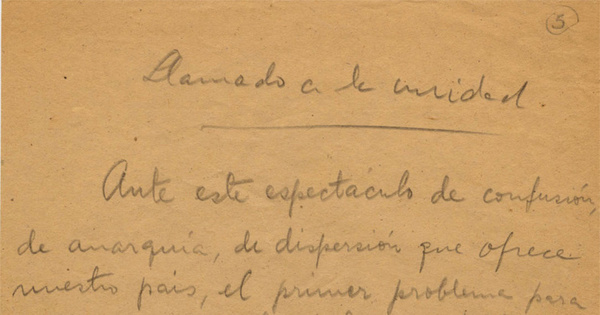 5
Llamado a la unidad.
Ante este espectáculo de confusión,
de anarquía, de dispersión que ofrece
nuestro país, el primer problema para